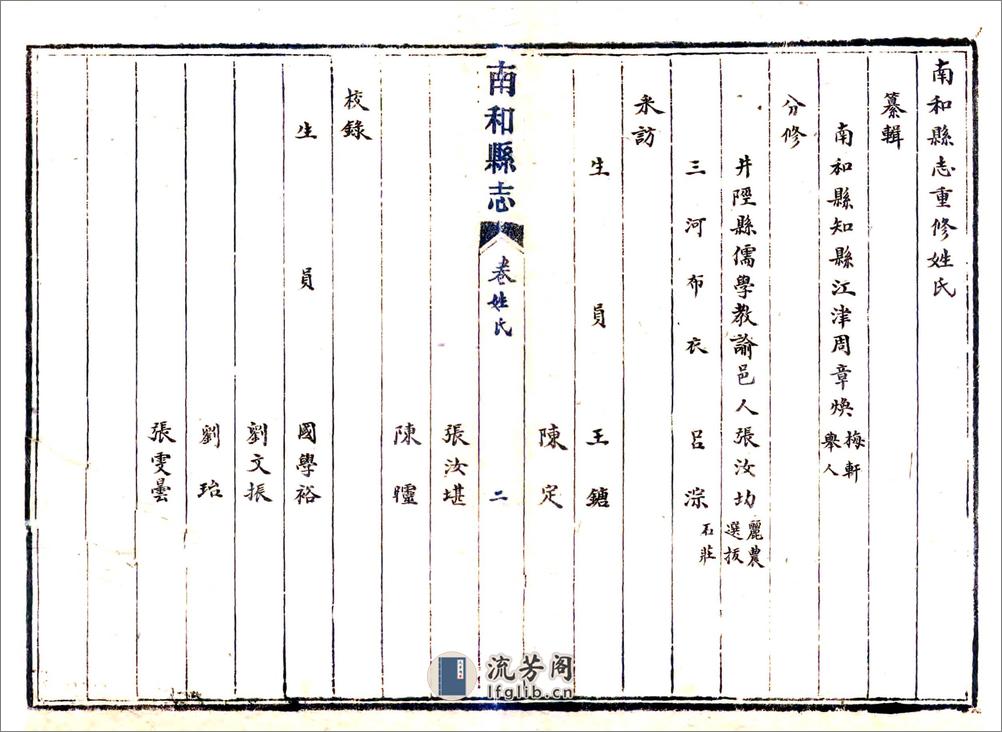 南和縣志重修姓氏
纂輯
南和縣知縣江津周章煥 梅軒 舉人
分修
井陘縣儒學教諭邑人張汝㘭 麗農 選拔
三河布衣呂淙 石莊
采訪
生員 王鎕
陳定
南和縣志 卷 姓氏 二
張汝堪
陳矑
校錄
生員 國學裕
劉文振
劉珆
張雯曇
流芳阁
lfglib.cn